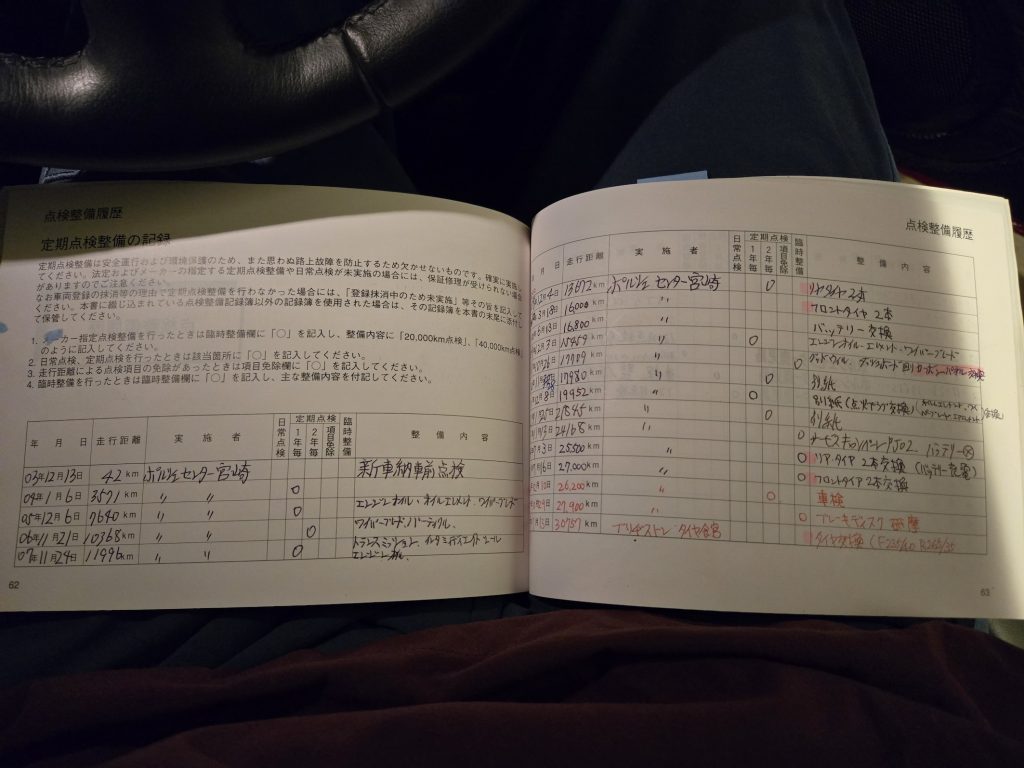 点検整備履歴
定期点検整備の記録
定期点検整備は安全運行および環境保護のため、また思わぬ路上故障を防止するため欠かせないものです。確実に実施し
てください。法定およびメーカーの指定する定期点検整備や日常点検が未実施の場合には、保証修理が受けられない場合
がありますのでご注意ください。
なお車両登録の抹消等の理由で定期点検整備を行わなかった場合には、「登録抹消中のため未実施」等その旨を記入して
ください。本書に綴じ込まれている点検整備記録簿以外の記録簿を使用された場合は、その記録簿を本書の末尾に添付し
て保管してください。
1. カー指定点検整備を行ったときは臨時整備欄に「○」を記入し、整備内容に「20,000km点検」、「40,000km点検」
のように記入してください。
2. 日常点検、定期点検を行ったときは該当箇所に「○」を記入してください。
3. 走行距離による点検項目の免除があったときは項目免除欄に「○」を記入してください。
4. 臨時整備を行ったときは臨時整備欄に「○」を記入し、主な整備内容を付記してください。
年 月 日 走行距離 実施者 日常点検 定期点検 1年毎 2年毎 項目免除 臨時整備 整備内容
03年12月13日 42km ポルシェセンター宮崎 新車納車前点検
04年1月6日 3571km 〃 〃 ○ エンジンオイル、オイルエレメント、ワイパーブレード
05年12月6日 7640km 〃 〃 ○ ワイパーブレード
06年11月21日 10368km 〃 〃 ○ トランスミッション
07年11月24日 11996km 〃 〃 ○ エンジンオイル
62
点検整備履歴
月 日 走行距離 実施者 日常点検 定期点検 1年毎 2年毎 項目免除 臨時整備 整備内容
12月4日 13672km ポルシェセンター宮崎 ○ リヤタイヤ2本
3月18日 16,000km 〃 フロントタイヤ2本
6月13日 16,800km 〃 バッテリー交換
2月7日 km 〃 ○ エンジンオイル・エレメント・ワイパーブレード
km 〃 ○
17980km 〃 ○ 別紙
12月8日 19952km 〃 ○ 別紙(点火プラグ交換)
km 〃 ○ 別紙
24168km 〃 ○ バッテリー
月3日 25,500km ○ リア・タイヤ2本交換(バッテリー充電)
月16日 27,000km 〃 ○ フロントタイヤ2本交換
26,200km 〃 ○ 車検
27,900km 〃 ○ ブレーキディスク研磨
30757km ブリヂストン タイヤ館宮 タイヤ交換
63